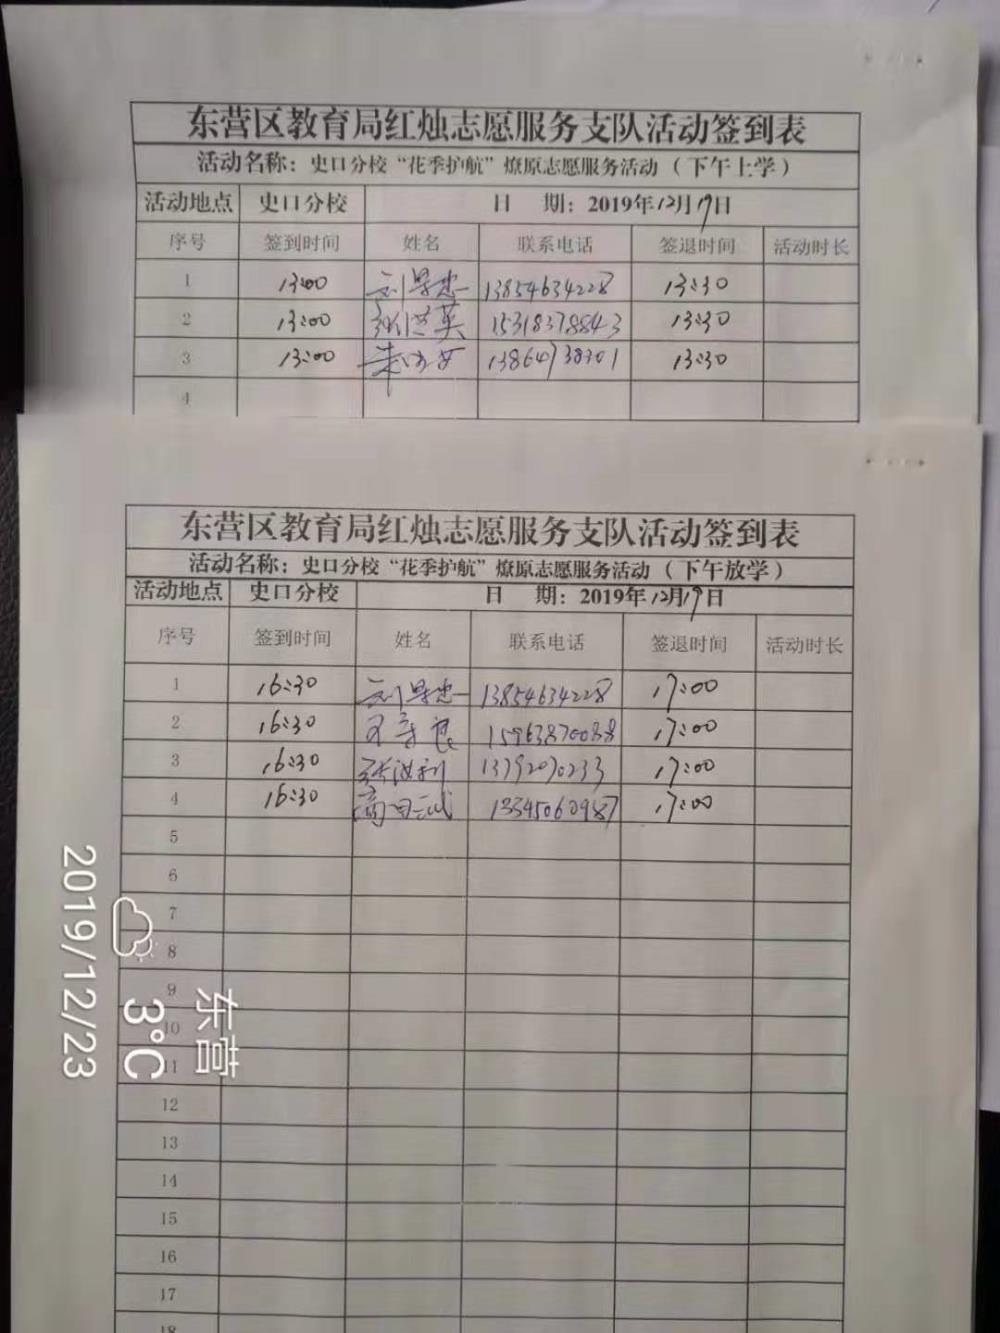 东营区教育局红烛志愿服务支队活动签到表
活动名称：史口分校“花季护航”燎原志愿服务活动（下午上学）
活动地点 史口分校 日 期：2019年12月17日
序号 签到时间 姓名 联系电话 签退时间 活动时长
1 13:00 13854634228 13:30
2 13:00 15318378843 13:30
3 13:00 13864738301 13:30
4
东营区教育局红烛志愿服务支队活动签到表
活动名称：史口分校“花季护航”燎原志愿服务活动（下午放学）
活动地点 史口分校 日 期：2019年12月17日
序号 签到时间 姓名 联系电话 签退时间 活动时长
1 16:30 13854634228 17:00
2 16:30 15963870088 17:00
3 16:30 13792070233 17:00
4 16:30 13345060987 17:00
5
6
7
8
9
10
11
12
13
14
15
16
17
18
东营
3°C
2019/12/23